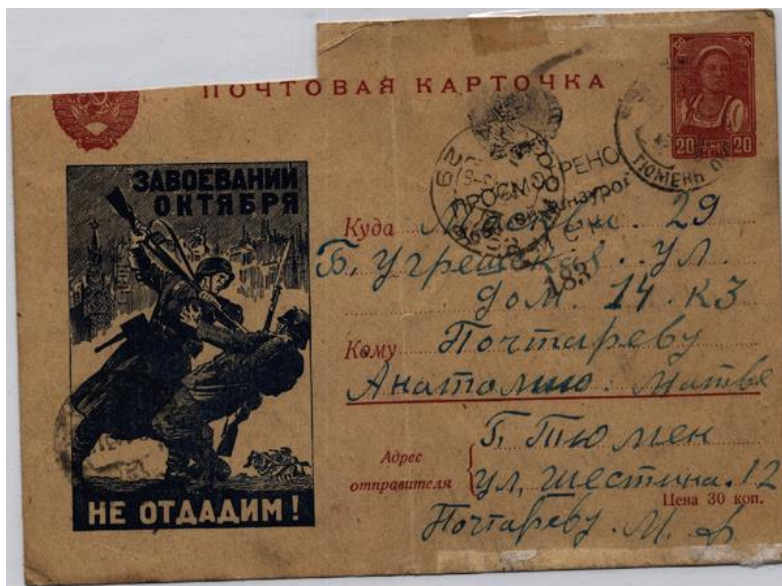 ПОЧТОВАЯ КАРТОЧКА
20 20
ТЮМЕНЬ
ПРОСМОТРЕНО
183
ЗАВОЕВАНИЙ
ОКТЯБРЯ
НЕ ОТДАДИМ!
Куда Москва. 29
Б. Угрешская. ул
дом. 14. к3
Кому Почтареву
Анатолию: Матве
Адрес
отправителя
Г. Тюмен
ул, шестина. 12
Цена 30 коп.
Почтареву. М. Ф